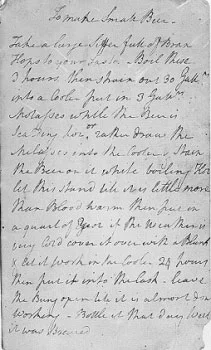 To make Small Beer
Take a large Siffer full of Bran
Hops to your Taste. Boil these
3 hours then strain out 30 Gall
into a Cooler put in 3 Gallns
Molasses while the Beer is
Scalding hot or rather draw the
Melasses into the Cooler & Strain
the Beer on it while boiling Hot
let this stand till it is little more
than Blood warm then put in
a quart of Yeast if the Weather is
very Cold cover it over with a Blank
& let it Work in the Cooler 24 hours
then put it into the Cask - leave
the Bung open till it is almost done
Working - Bottle it that day Week
it was Brewed